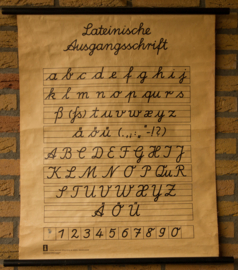 Lateinische
Ausgangsschrift
a b c d e f g h i j
k l m n o p qu r s
ß (ſs) t u v w x y z
ä ö ü (.,:;„"-!?)
A B C D E F G H I J
K L M N O P Qu R
S T U V W X Y Z
Ä Ö Ü
1 2 3 4 5 6 7 8 9 0